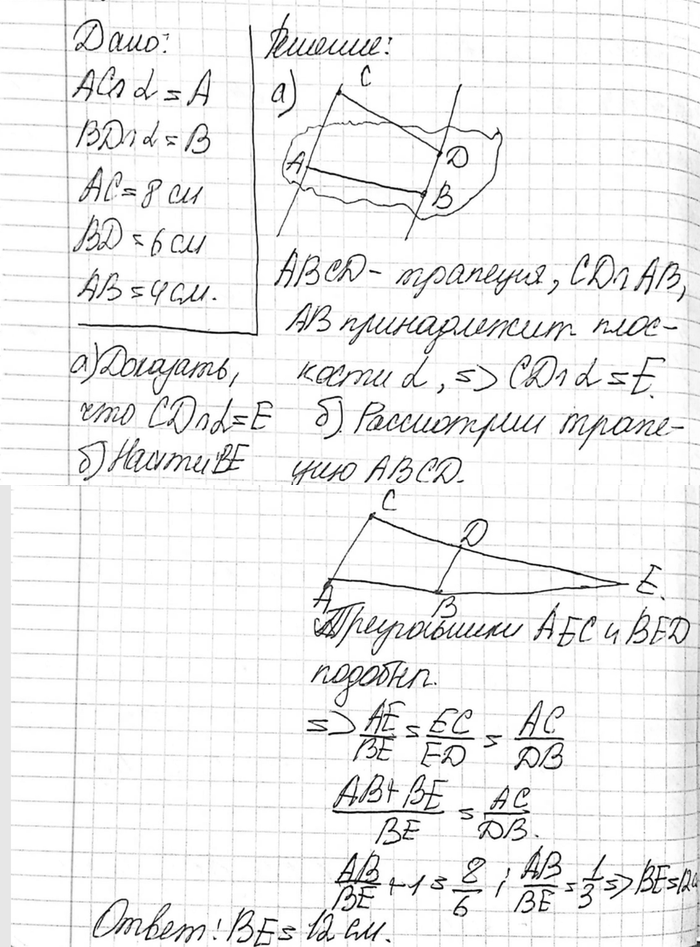 Дано:
AC∩α = A
BD∩α = B
AC = 8 см
BD = 6 см
AB = 4 см.
а) Доказать,
что CD∩α = E
б) Найти BE
Решение:
а)
C
A
D
B
ABCD - трапеция, CD∩AB,
AB принадлежит плос-
кости α, => CD∩α = E.
б) Рассмотрим трапе-
цию ABCD.
C
D
A
B
E.
Треугольники AEC и BED
подобны.
=> AE/BE = EC/ED = AC/DB
AB+BE/BE = AC/DB.
AB/BE + 1 = 8/6 ; AB/BE = 1/3 => BE = 12 с
Ответ: BE = 12 см.